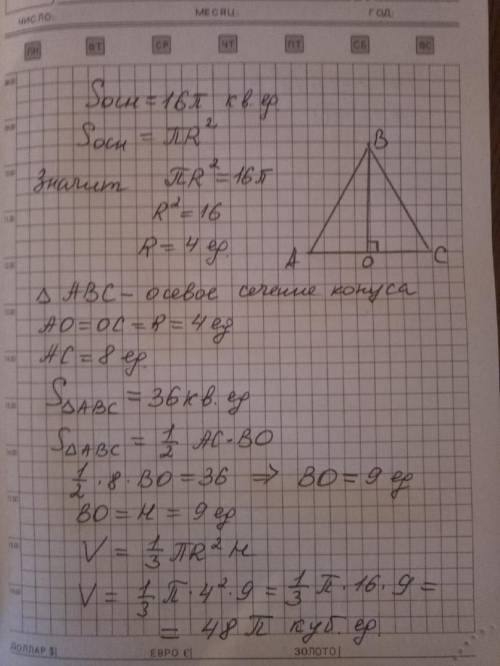 ЧИСЛО: МЕСЯЦ: ГОД:
ПН ВТ СР ЧТ ПТ СБ ВС
Sосн = 16π кв. ед.
Sосн = πR²
Значит πR² = 16π
R² = 16
R = 4 ед.
B
A O C
Δ ABC – осевое сечение конуса
AO = OC = R = 4 ед
AC = 8 ед.
SΔABC = 36 кв. ед
SΔABC = 1/2 AC · BO
1/2 · 8 · BO = 36 ⇒ BO = 9 ед
BO = H = 9 ед
V = 1/3 πR² H
V = 1/3 π · 4² · 9 = 1/3 π · 16 · 9 =
= 48 π куб. ед.
ДОЛЛАР $| ЕВРО €| ЗОЛОТО|